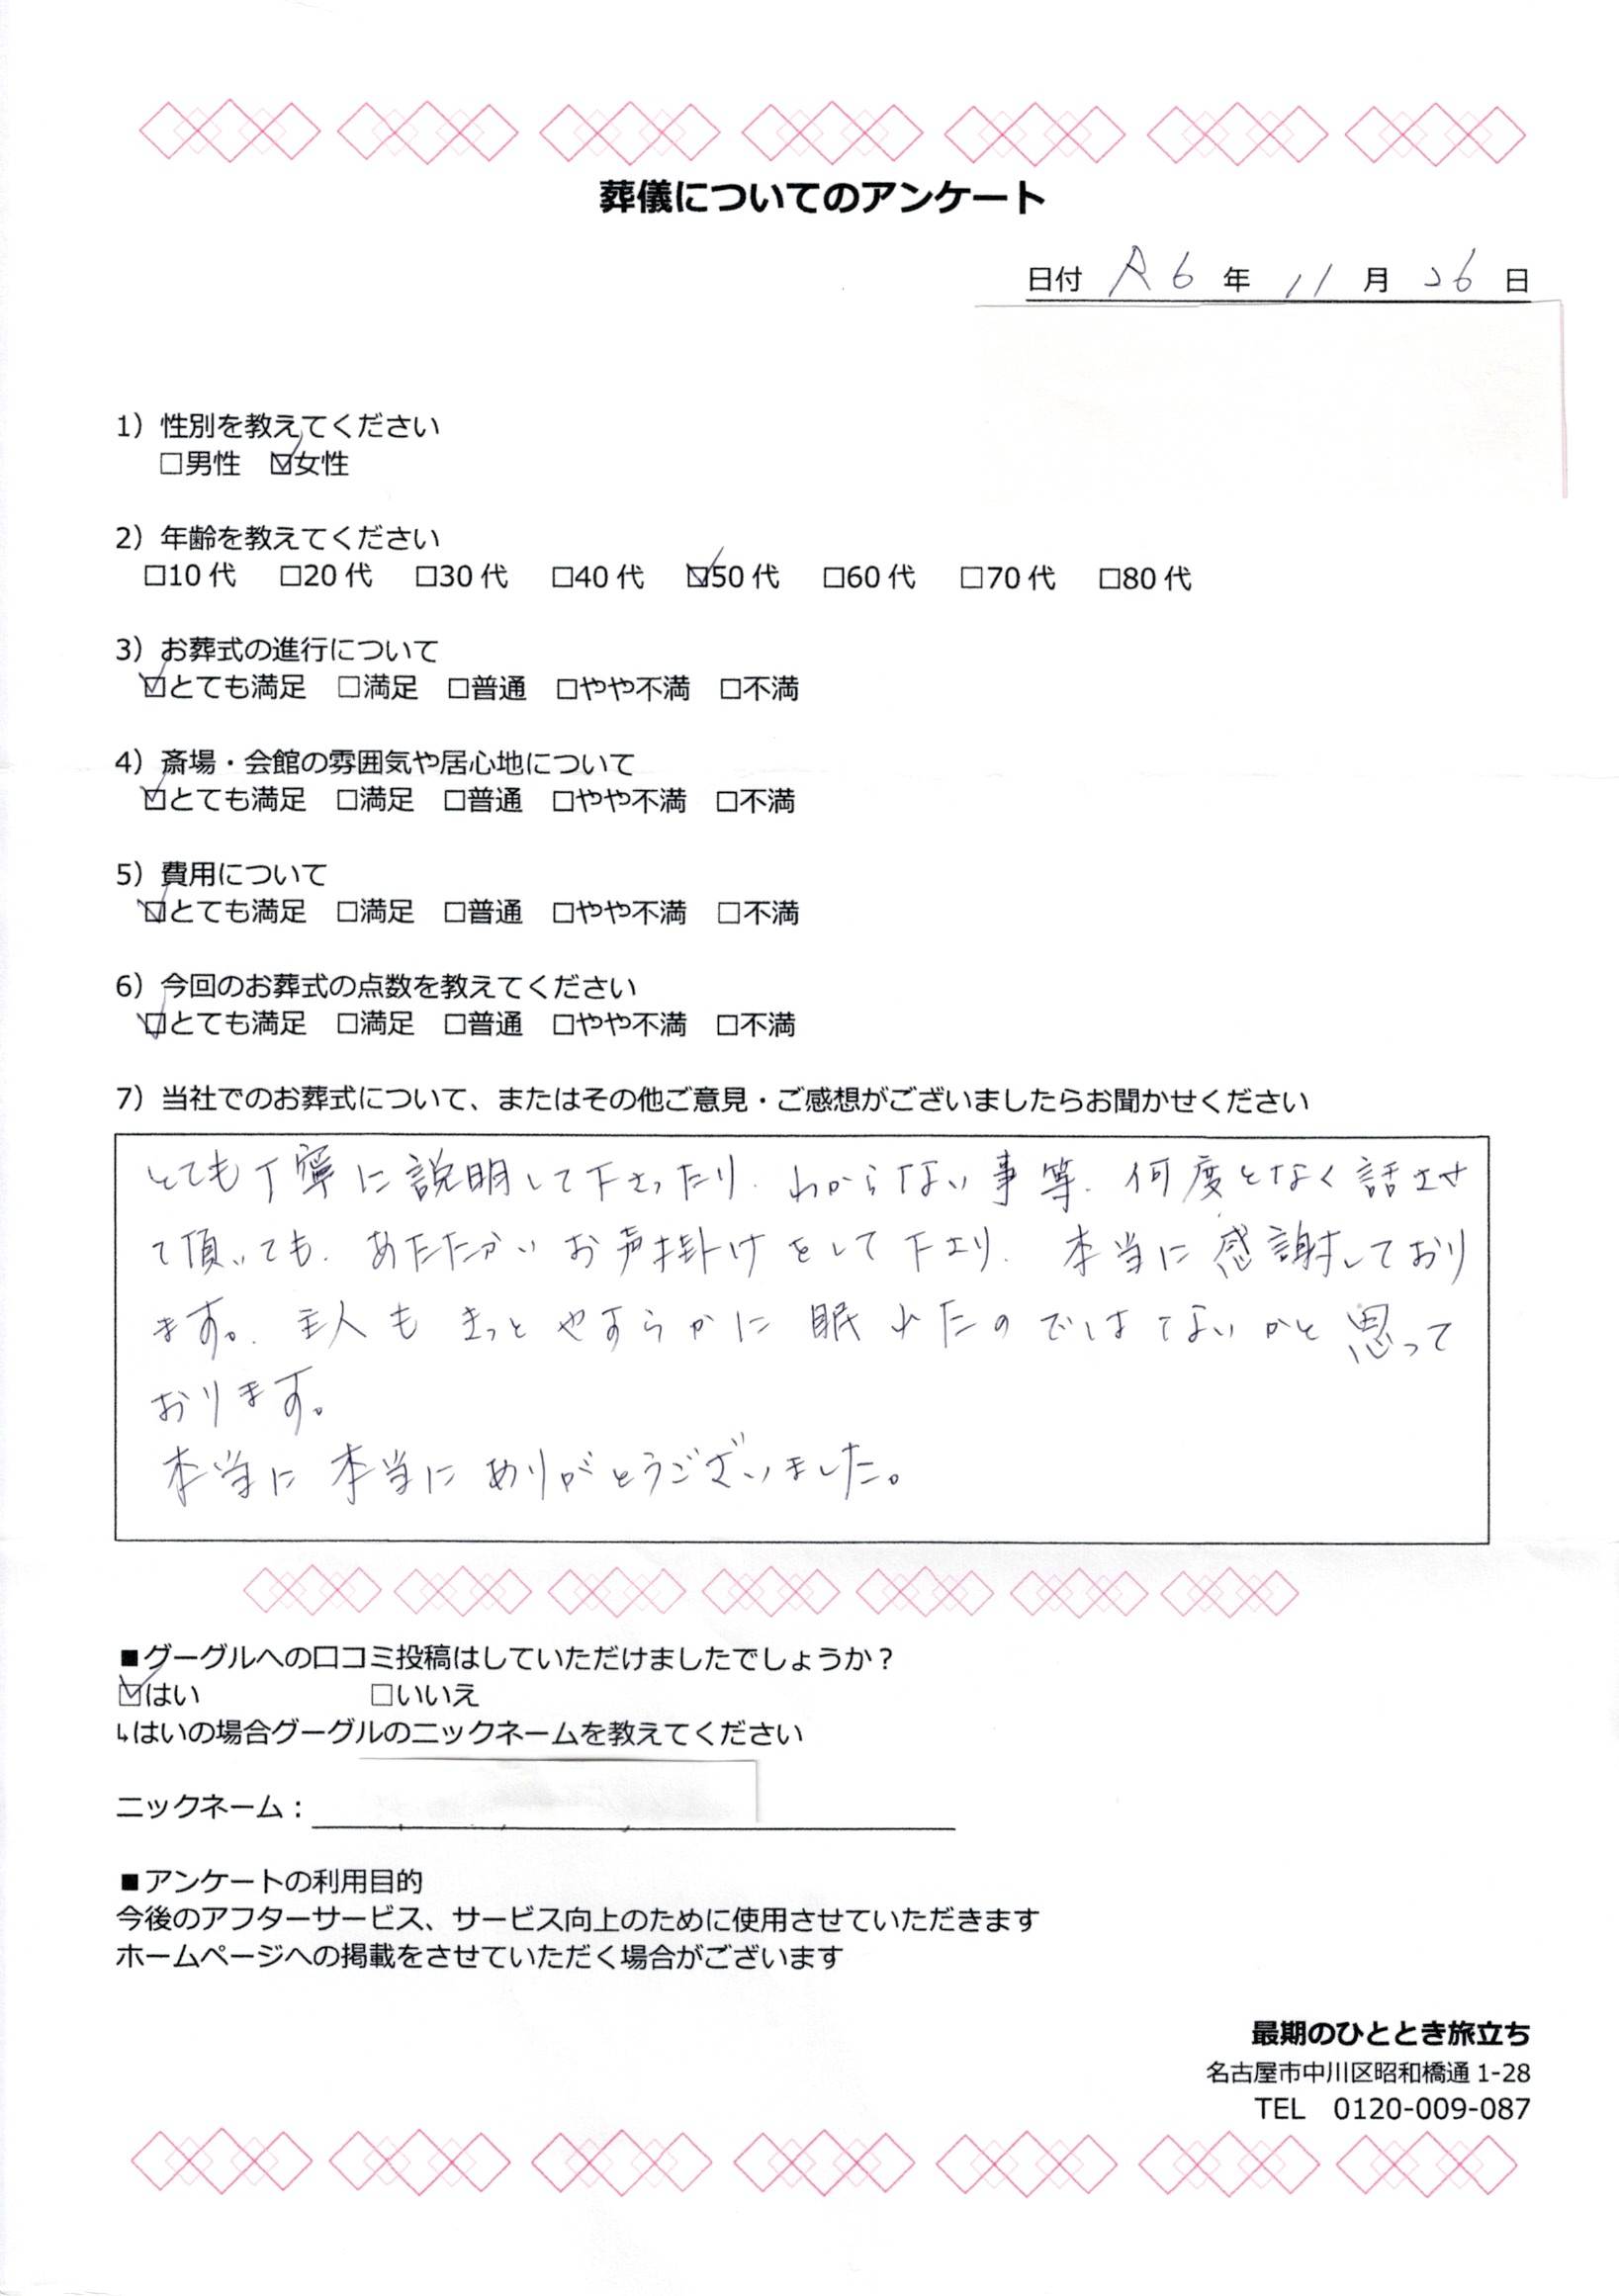 葬儀についてのアンケート
日付 R6 年 11 月 26 日
1）性別を教えてください
□男性 ☑女性
2）年齢を教えてください
□10代 □20代 □30代 □40代 ☑50代 □60代 □70代 □80代
3）お葬式の進行について
☑とても満足 □満足 □普通 □やや不満 □不満
4）斎場・会館の雰囲気や居心地について
☑とても満足 □満足 □普通 □やや不満 □不満
5）費用について
☑とても満足 □満足 □普通 □やや不満 □不満
6）今回のお葬式の点数を教えてください
☑とても満足 □満足 □普通 □やや不満 □不満
7）当社でのお葬式について、またはその他ご意見・ご感想がございましたらお聞かせください
とても丁寧に説明して下さったり、わからない事等、何度となく話させ
て頂いても、あたたかいお声掛けをして下さり、本当に感謝しており
ます。主人もきっとやすらかに眠れたのではないかと思って
おります。
本当に本当にありがとうございました。
■グーグルへの口コミ投稿はしていただけましたでしょうか？
☑はい □いいえ
↳はいの場合グーグルのニックネームを教えてください
ニックネーム：
■アンケートの利用目的
今後のアフターサービス、サービス向上のために使用させていただきます
ホームページへの掲載をさせていただく場合がございます
最期のひととき旅立ち
名古屋市中川区昭和橋通1-28
TEL 0120-009-087